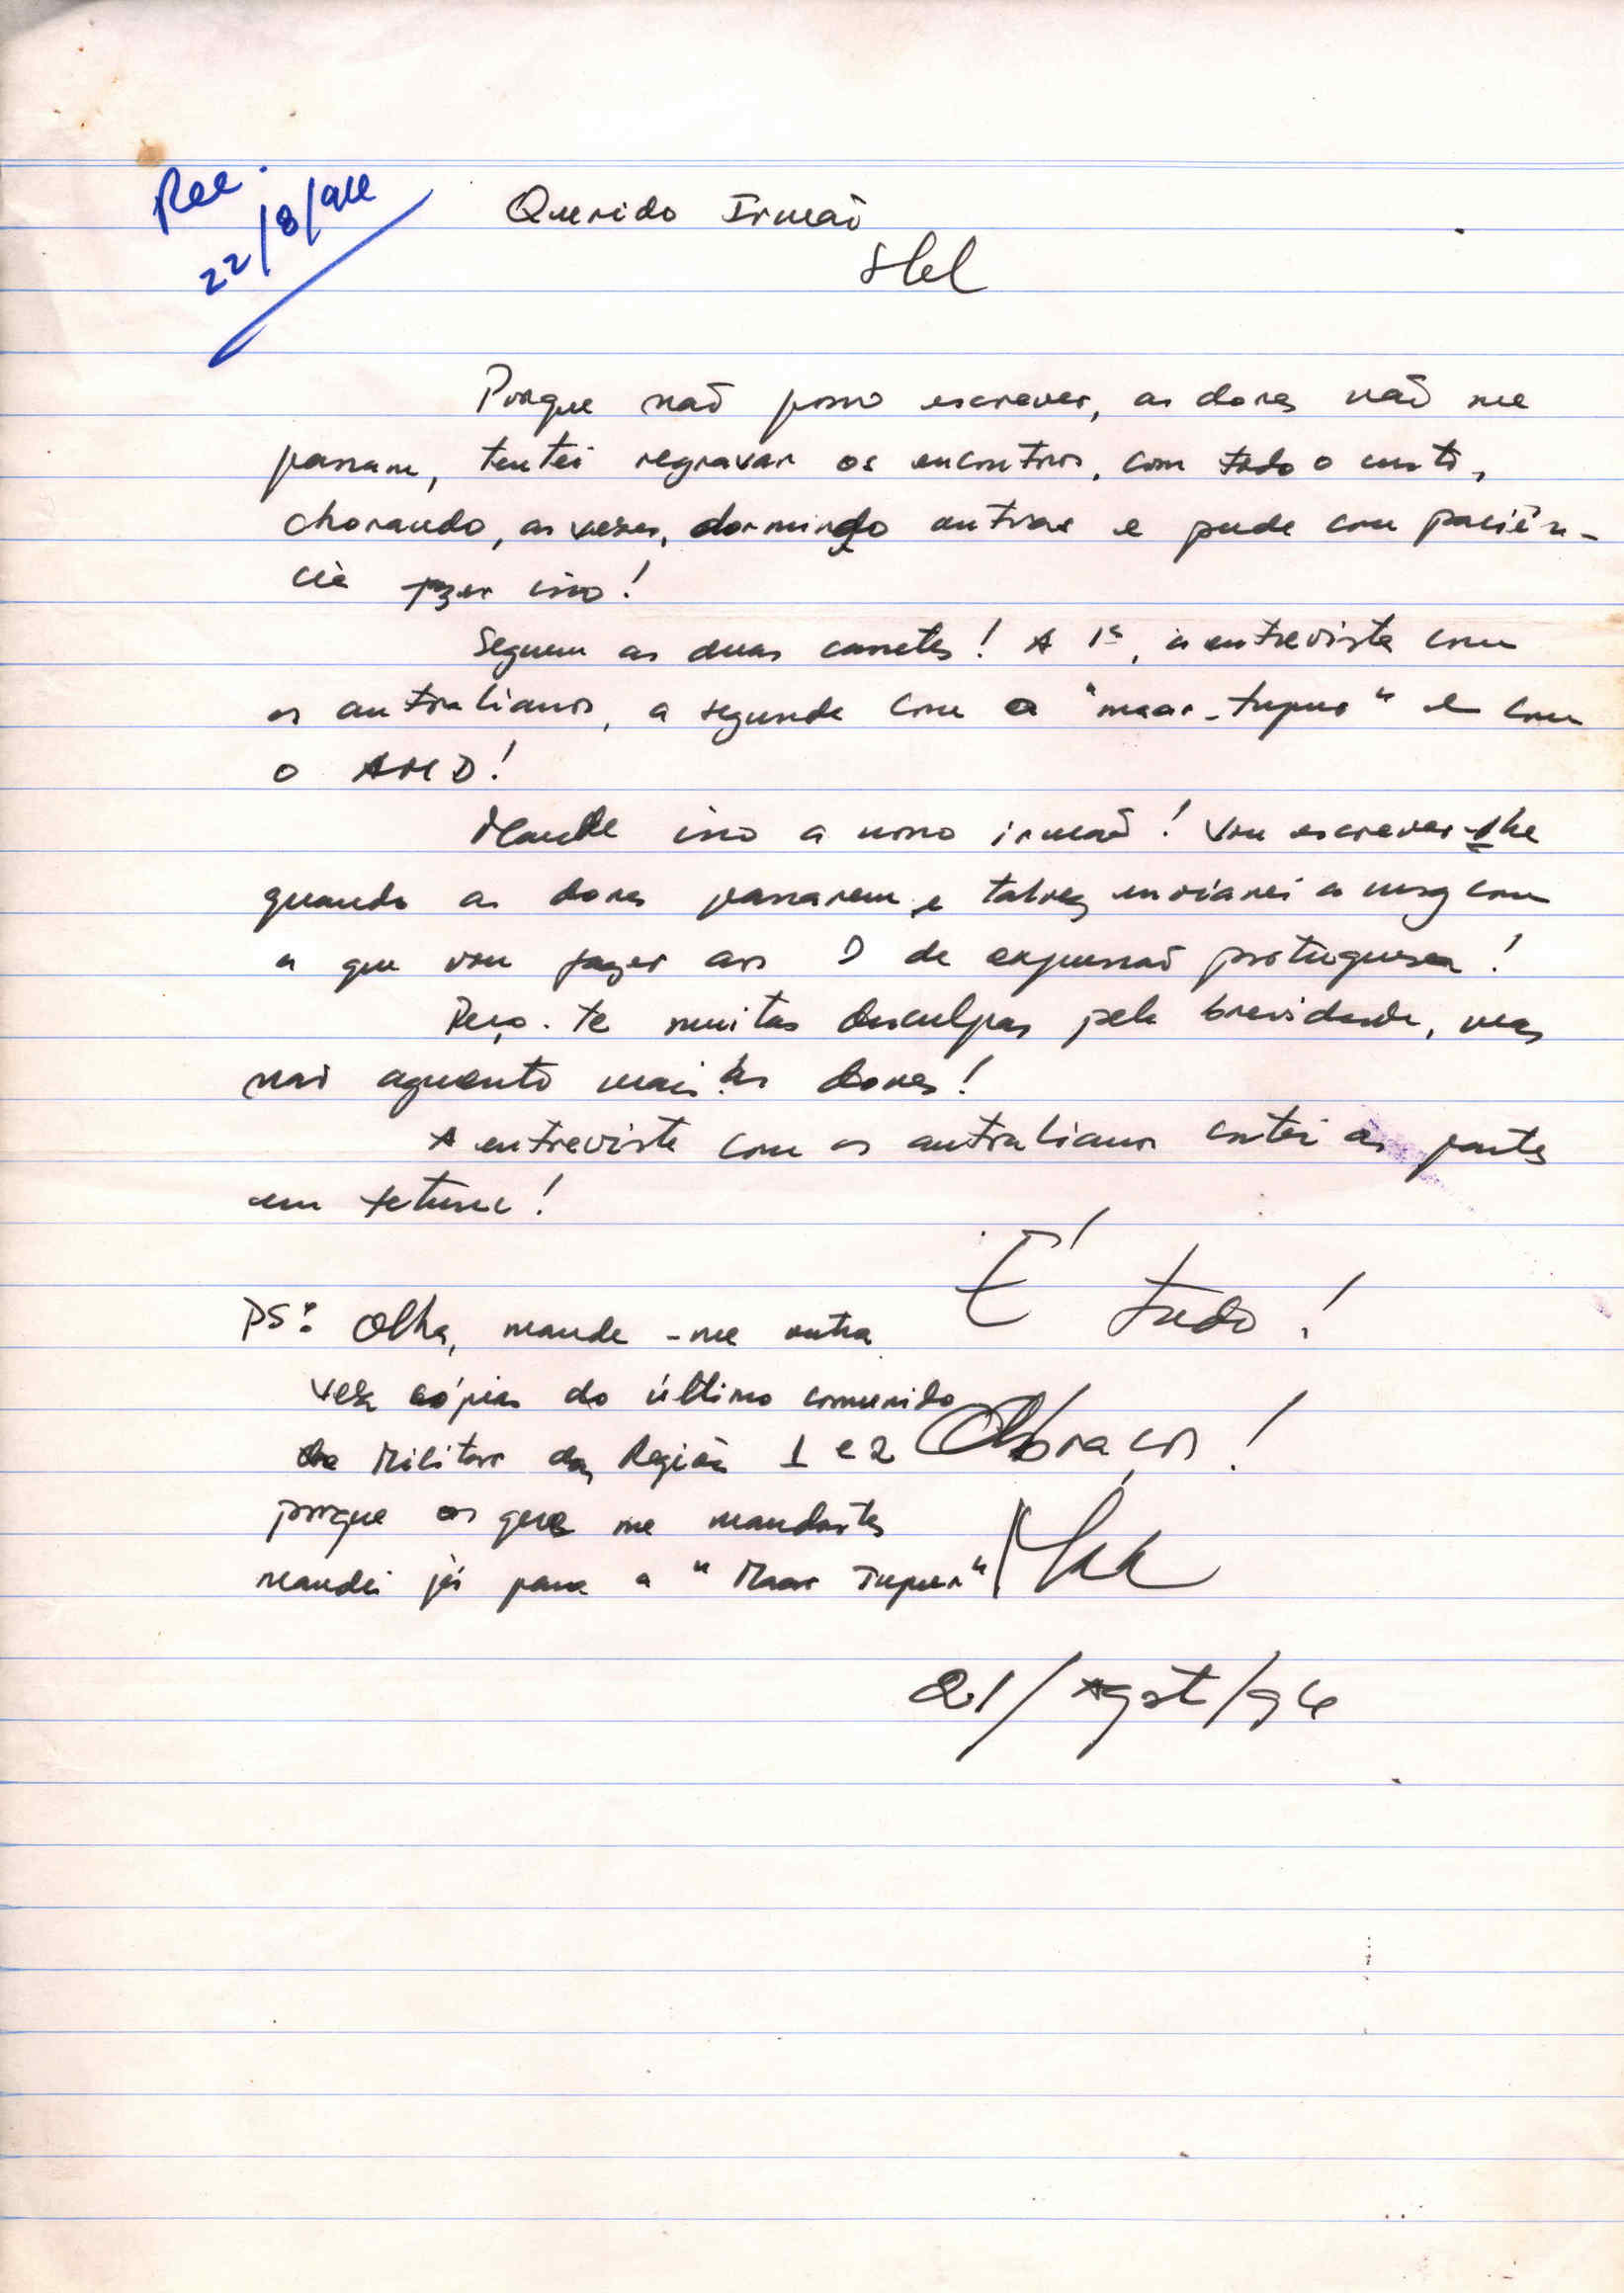 Rec.
22/8/94
Querido Irmão
Porque não posso escrever, as dores não me
passam, tentei regravar os encontros, com todo o custo,
chorando, as vezes, dormindo outras e pude com paciên-
cia fazer isso!
Seguem as duas cassetes! A 1ª, a entrevista com
os australianos, a segunda com a "maar-tupur" e com
o
Mande isso a nosso irmão! Vou escrever-lhe
quando as dores passarem e talvez enviarei a msg com
a que vou fazer aos 5 de expressão portuguesa!
Peço-te muitas desculpas pela brevidade, mas
não aguento mais as dores!
A entrevista com os australianos cortei as partes
em tetum!
É tudo!
PS: Olha, mande-me outra
vez cópias do último comunido
Militar das Regiões 1 e 2
Abraços!
porque os que me mandastes
mandei já para a "Maar Tupur"
21/Agst/94